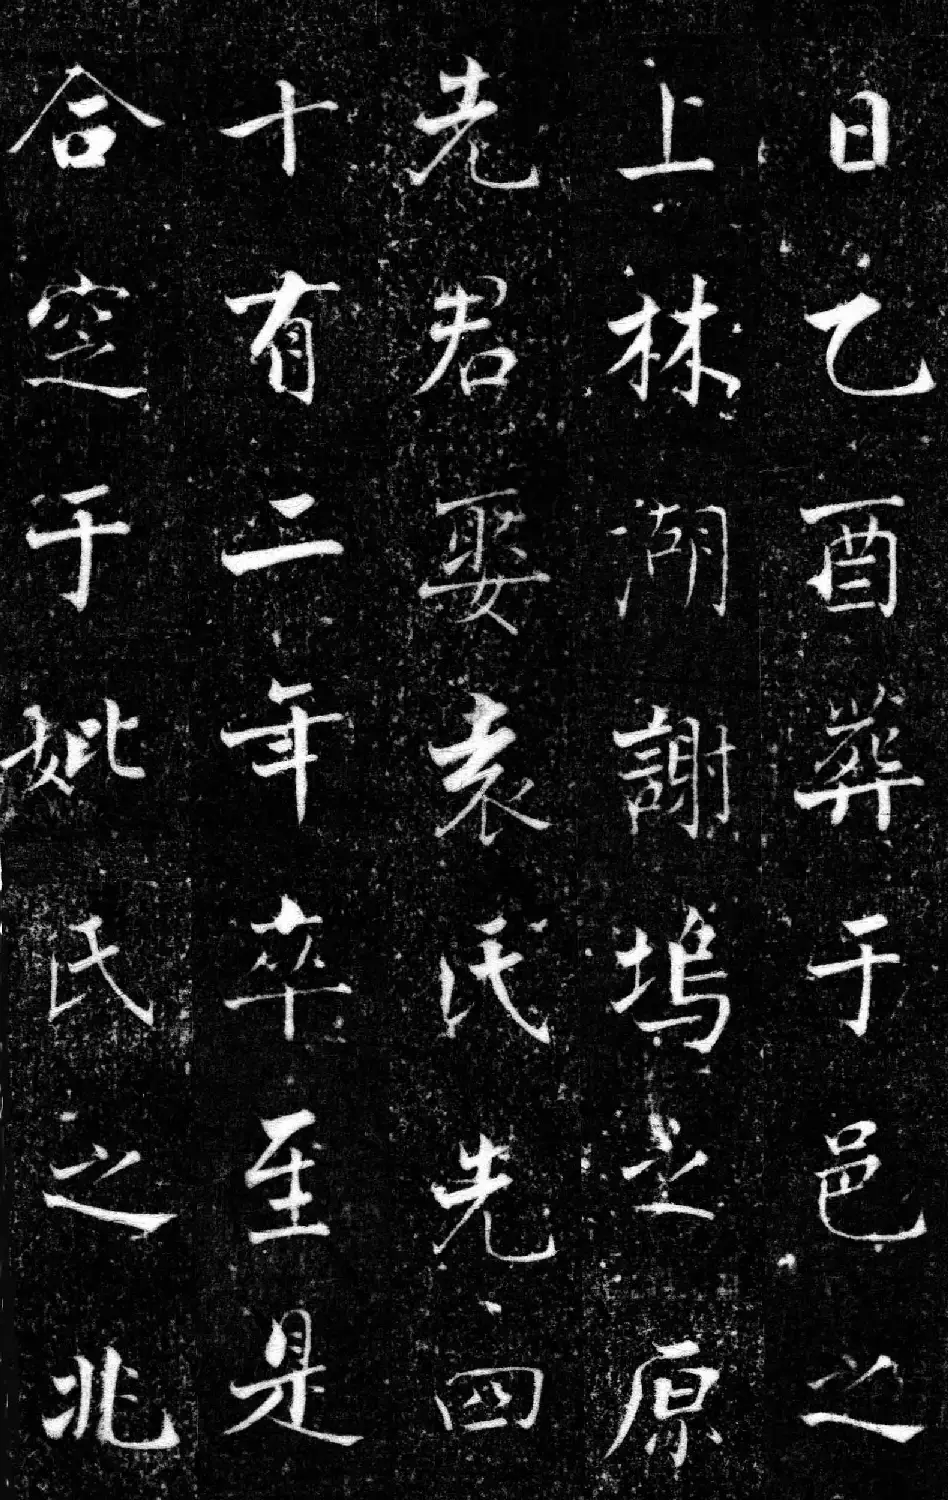 日乙酉葬于邑之
上林湖謝塢之原
先君娶袁氏先四
十有二年卒至是
合窆于妣氏之兆